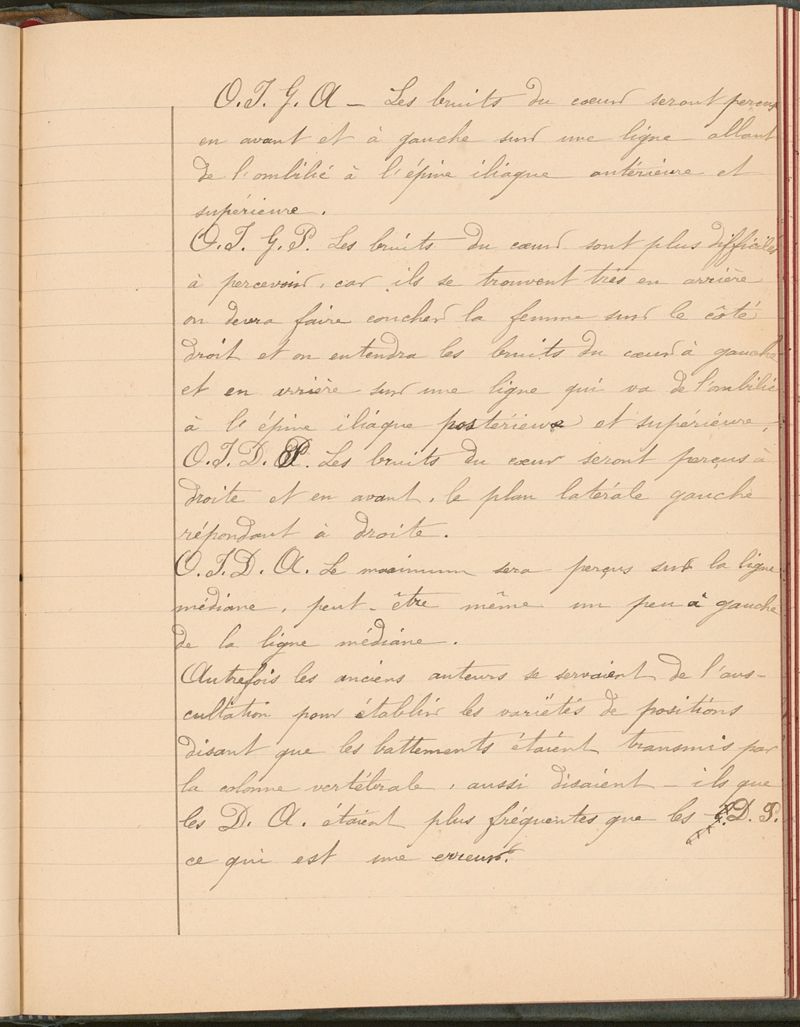 O. I. G. A – Les bruits du cœur seront perçus
en avant et à gauche sur une ligne allant
de l'ombilic à l'épine iliaque antérieure et
supérieure.
O. I. G. P. Les bruits du cœur sont plus difficiles
à percevoir, car ils se trouvent très en arrière
on devra faire coucher la femme sur le côté
droit et on entendra les bruits du cœur à gauche
et en arrière sur une ligne qui va de l'ombilic
à l'épine iliaque postérieure et supérieure.
O. I. D. P. Les bruits du cœur seront perçus à
droite et en avant, le plan latérale gauche
répondant à droite.
O. I. D. A. Le maximum sera perçus sur la ligne
médiane, peut-être même un peu à gauche
de la ligne médiane.
Autrefois les anciens auteurs se servaient de l'aus-
cultation pour établir les variétés de positions
disant que les battements étaient transmis par
la colonne vertébrale, aussi disaient-ils que
les D. A. étaient plus fréquentes que les D. P.
ce qui est une erreur.